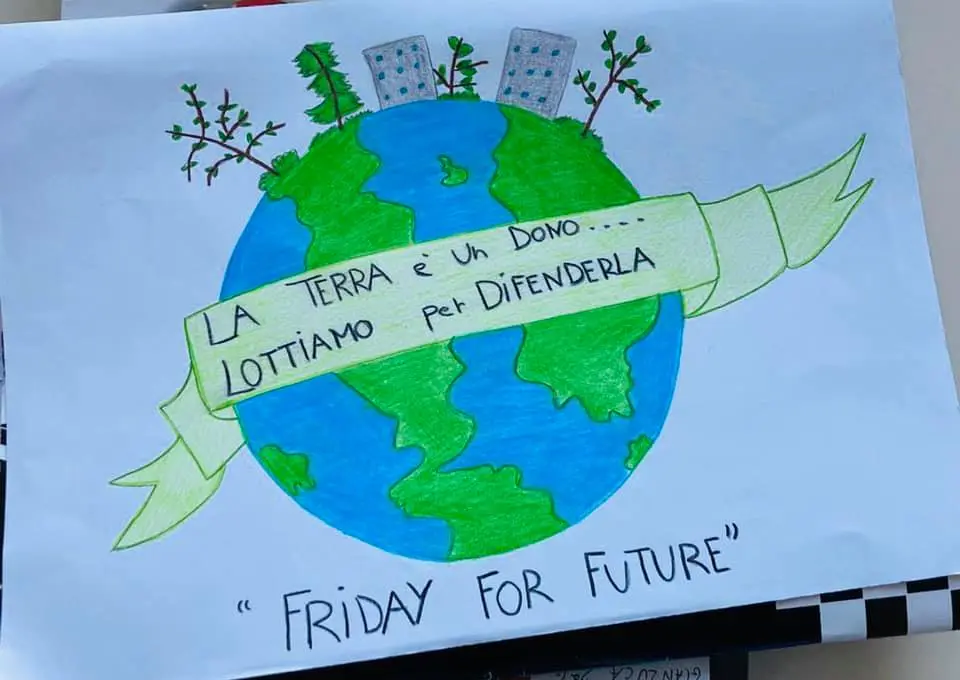 LA TERRA è Un DONO.....
LOTTIAMO per DIFENDERLA
“ FRIDAY FOR FUTURE”